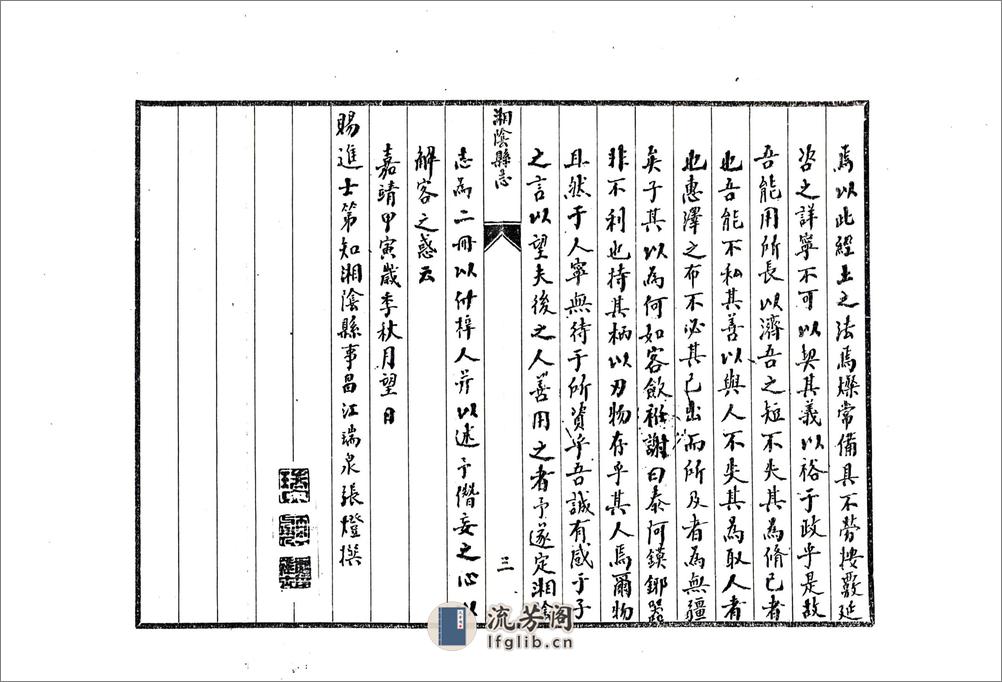 焉以此經土之法焉燦常備具不勞搜覈延
咨之詳寧不可以契其義以裕于政乎是故
吾能用所長以濟吾之短不失其為脩己者
也吾能不私其善以與人不失其為取人者
也惠澤之布不必其已出而所及者為無疆
矣子其以為何如客斂袵謝曰泰阿鏌鎁器
非不利也持其柄以刃物存乎其人焉爾物
且然于人寧無待于所資乎吾誠有感于子
之言以望夫後之人善用之者予遂定湘陰
湘陰縣志
三
志為二冊以付梓人并以述予僭妄之心以
解客之惑云
嘉靖甲寅歲季秋月望日
賜進士第知湘陰縣事昌江瑞泉張燈撰
流芳阁
lfglib.cn